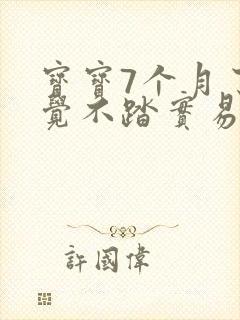 寶寶7个月
覺不踏實易
許國偉